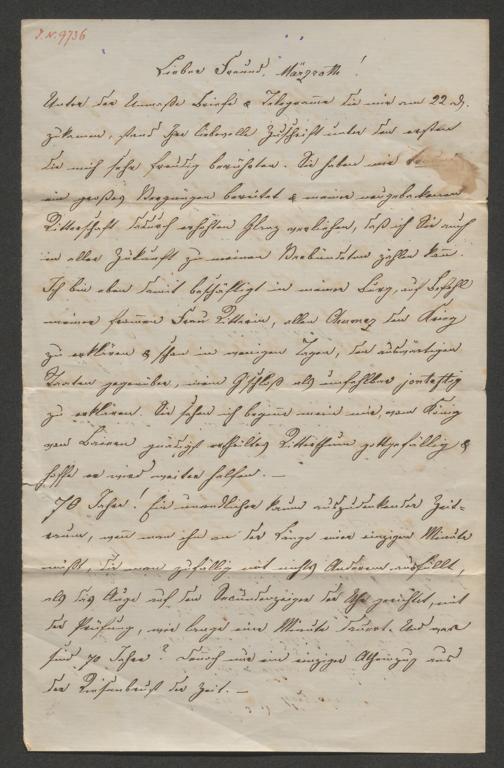 J.N. 9736
Lieber Freund, Märzroth!
Unter der Unmasse Briefe & Telegramme die mir am 22 d.
zukamen, stand Ihre liebevolle Zuschrift unter den ersten
die mich sehr freudig berührten. Sie haben mir
ein großes Vergnügen bereitet & meiner neugebackenen
Ritterschaft dadurch erhöhten Glanz verliehen, daß ich Sie auch
in aller Zukunft zu meinen Verbündeten zählen kann.
Ich bin eben damit beschäftigt in meiner Burg, auf Befehl
meiner frommen Frau Ritterin, allen den Krieg
zu erklären & schon in wenigen Tagen, den auswärtigen
Staaten gegenüber, mein als unfehlbar
zu erklären. Sie sehen ich beginne mein mir, vom König
von Baiern gnädigst ertheiltes Ritterthum gottgefällig &
hoffe er wird weiter helfen. —
70 Jahre! Ein unendlicher kaum auszudenkender Zeit=
raum, wenn man ihn an der Länge einer einzigen Minute
mißt, die man zufällig mit nichts Anderem ausfüllt,
als das Auge auf den Secundenzeiger der Uhr gerichtet, mit
der Prüfung, wie lange eine Minute dauert. Und was
sind 70 Jahre? Doch nur ein einziger Athemzug aus
der Riesenbrust der Zeit. —